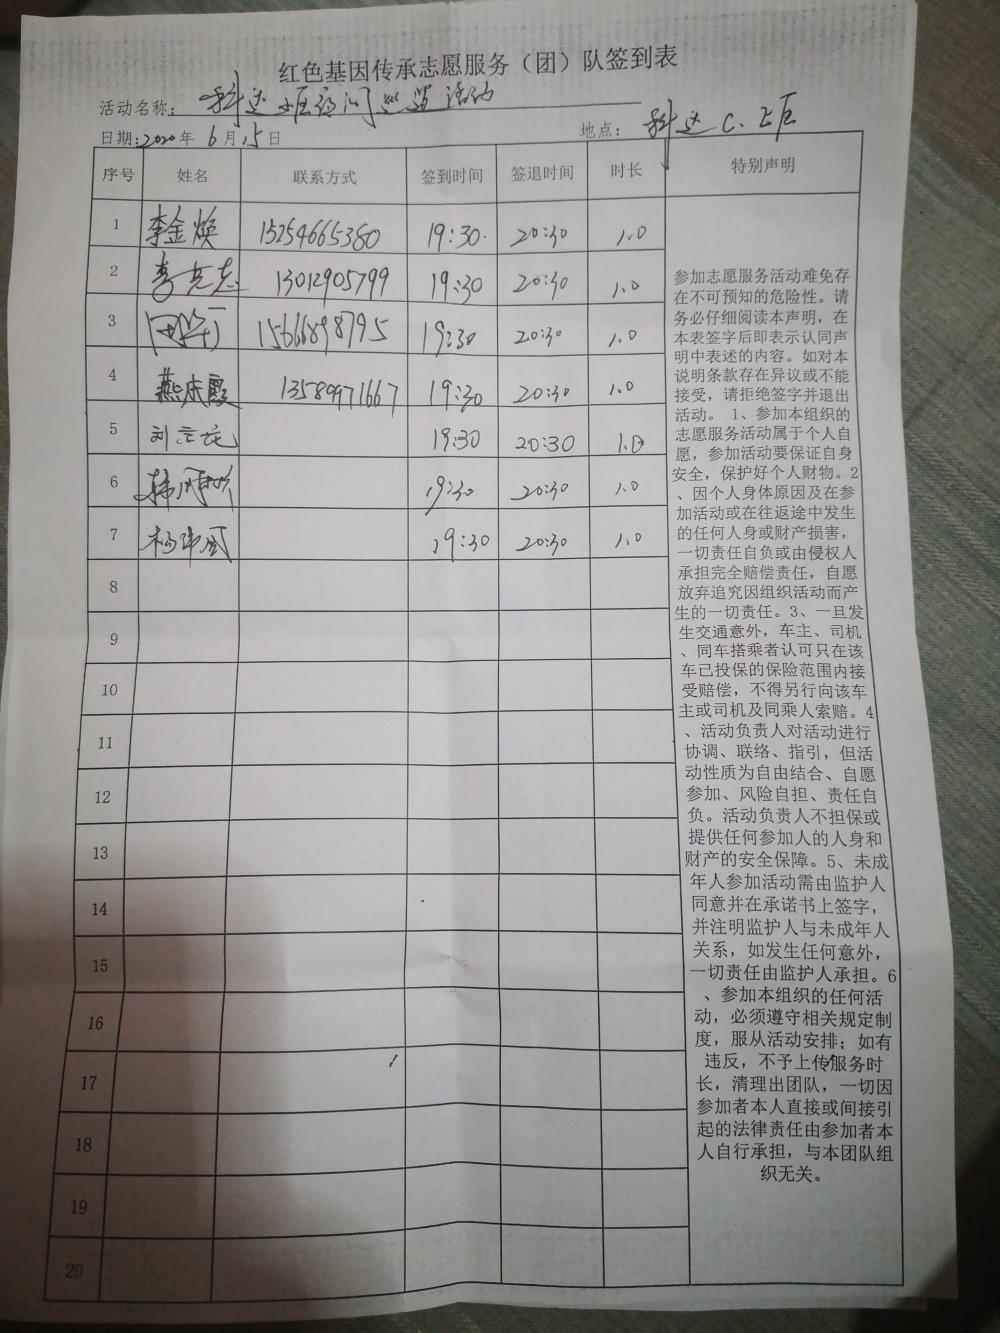 红色基因传承志愿服务（团）队签到表
活动名称：科达小区夜间巡逻活动
日期：2020年6月15日 地点：科达C.上区
序号 姓名 联系方式 签到时间 签退时间 时长 特别声明
1 李金焕 15254665380 19:30 20:30 1.0
2 李志 13012905799 19:30 20:30 1.0
3 15666898795 19:30 20:30 1.0
4 燕庆霞 13589971667 19:30 20:30 1.0
5 刘 19:30 20:30 1.0
6 韩 19:30 20:30 1.0
7 杨 19:30 20:30 1.0
8
9
10
11
12
13
14
15
16
17
18
19
20
参加志愿服务活动难免存
在不可预知的危险性。请
务必仔细阅读本声明，在
本表签字后即表示认同声
明中表述的内容。如对本
说明条款存在异议或不能
接受，请拒绝签字并退出
活动。 1、参加本组织的
志愿服务活动属于个人自
愿，参加活动要保证自身
安全，保护好个人财物。2
、因个人身体原因及在参
加活动或在往返途中发生
的任何人身或财产损害，
一切责任自负或由侵权人
承担完全赔偿责任，自愿
放弃追究因组织活动而产
生的一切责任。3、一旦发
生交通意外，车主、司机
、同车搭乘者认可只在该
车已投保的保险范围内接
受赔偿，不得另行向该车
主或司机及同乘人索赔。4
、活动负责人对活动进行
协调、联络、指引，但活
动性质为自由结合、自愿
参加、风险自担、责任自
负。活动负责人不担保或
提供任何参加人的人身和
财产的安全保障。5、未成
年人参加活动需由监护人
同意并在承诺书上签字，
并注明监护人与未成年人
关系，如发生任何意外，
一切责任由监护人承担。6
、参加本组织的任何活
动，必须遵守相关规定制
度，服从活动安排；如有
违反，不予上传服务时
长，清理出团队，一切因
参加者本人直接或间接引
起的法律责任由参加者本
人自行承担，与本团队组
织无关。